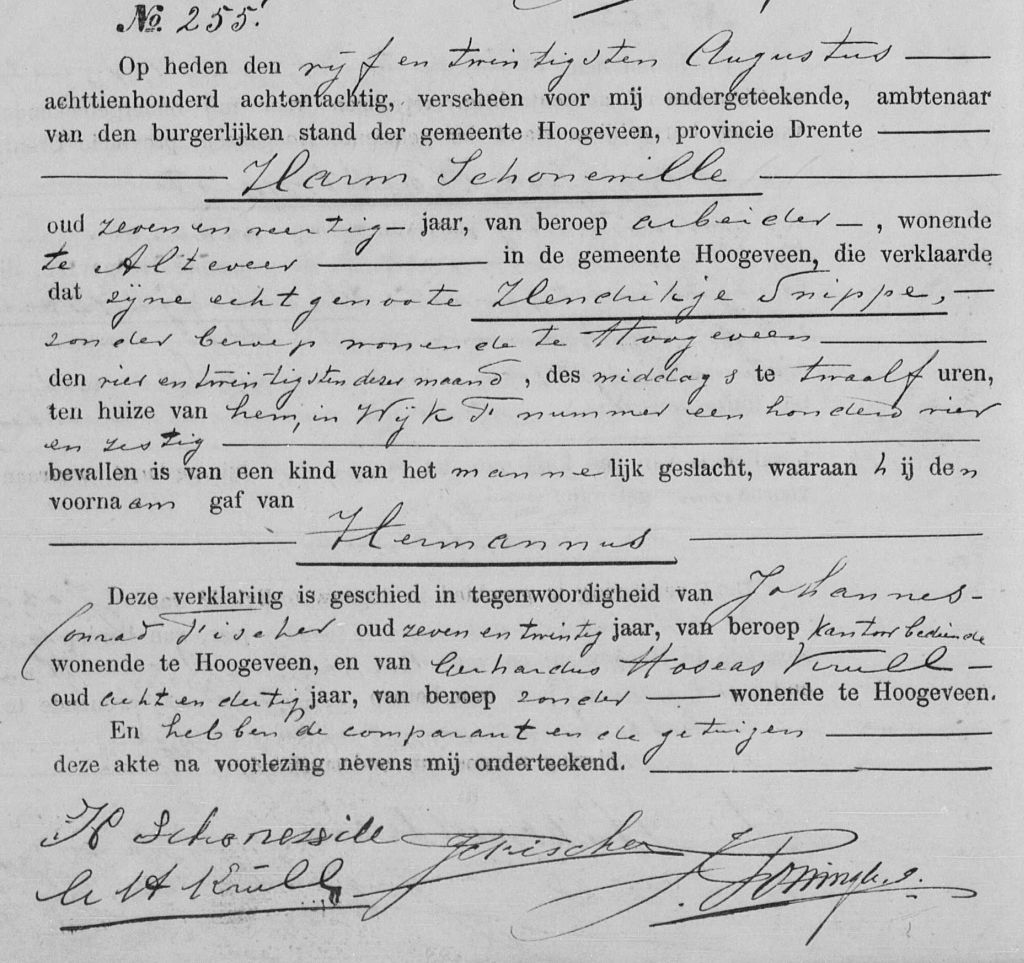 No. 255.
Op heden den vijf en twintigsten Augustus
achttienhonderd achtentachtig, verscheen voor mij ondergeteekende, ambtenaar
van den burgerlijken stand der gemeente Hoogeveen, provincie Drente
Harm Schonewille
oud zeven en veertig jaar, van beroep arbeider, wonende
te Alteveer in de gemeente Hoogeveen, die verklaarde
dat zijne echtgenoote Hendrikje Snippe,
zonder beroep wonende te Hoogeveen
den vier en twintigsten dezer maand, des middags te twaalf uren,
ten huize van hem, in Wijk F nummer een honderd vier
en zestig
bevallen is van een kind van het mannelijk geslacht, waaraan hij den
voornaam gaf van
Hermannus
Deze verklaring is geschied in tegenwoordigheid van Johannes
Conrad Fischer oud zeven en twintig jaar, van beroep kantoorbediende
wonende te Hoogeveen, en van Gerhardus Hoseas Krull
oud acht en dertig jaar, van beroep zonder wonende te Hoogeveen.
En hebben de comparant en de getuigen
deze akte na voorlezing nevens mij onderteekend.
H Schonewille JCFischer
G H Krull